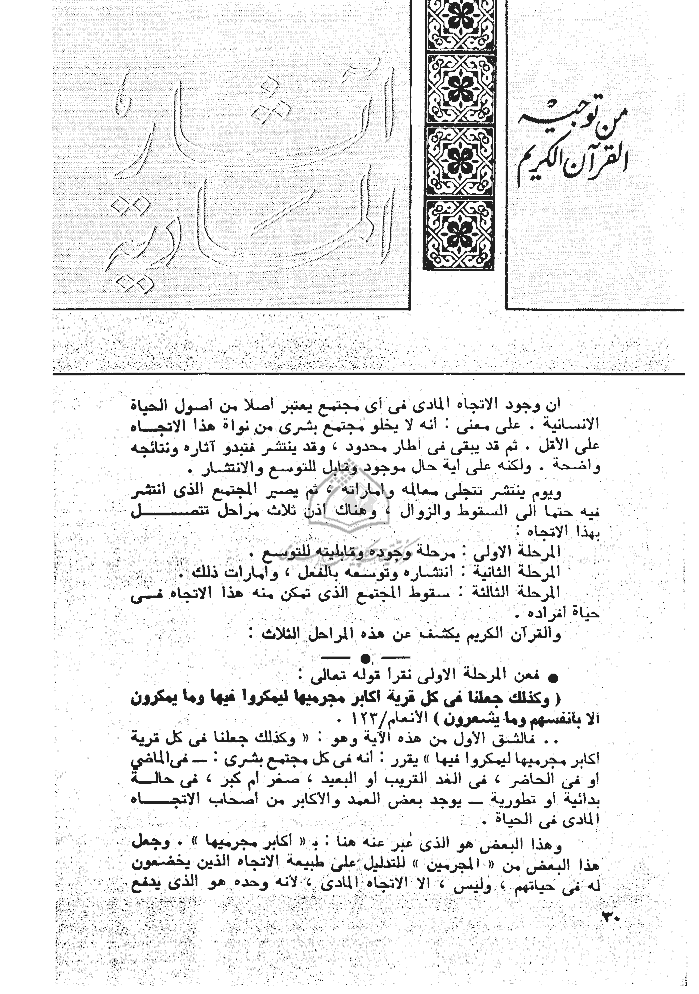 من توجيه
القرآن الكريم
المادية
ان وجود الاتجاه المادى فى أى مجتمع يعتبر أصلا من أصول الحياة
الانسانية . على معنى : أنه لا يخلو مجتمع بشرى من نواة هذا الاتجـاه
على الأقل . ثم قد يبقى فى اطار محدود ، وقد ينتشر فتبدو آثاره ونتائجه
واضحة . ولكنه على أية حال موجود وقابل للتوسع والانتشار .
ويوم ينتشر تتجلى معالمه وأماراته ، ثم يصير المجتمع الذى انتشر
فيه حتما الى السقوط والزوال ، وهناك اذن ثلاث مراحل تتصـــــل
بهذا الاتجاه :
المرحلة الأولى : مرحلة وجوده وقابليته للتوسع .
المرحلة الثانية : انتشاره وتوسعه بالفعل ، وأمارات ذلك .
المرحلة الثالثة : سقوط المجتمع الذى تمكن منه هذا الاتجاه فـــى
حياة أفراده .
والقرآن الكريم يكشف عن هذه المراحل الثلاث :
● فعن المرحلة الأولى نقرأ قوله تعالى :
( وكذلك جعلنا فى كل قرية أكابر مجرميها ليمكروا فيها وما يمكرون
الا بأنفسهم وما يشعرون ) الأنعام/١٢٣ .
٠٠ فالشق الأول من هذه الآية وهو : « وكذلك جعلنا فى كل قرية
أكابر مجرميها ليمكروا فيها » يقرر : أنه فى كل مجتمع بشرى : ــ فى الماضى
أو فى الحاضر ، فى الغد القريب أو البعيد ، صغر أم كبر ، فى حالـــة
بدائية أو تطورية ــ يوجد بعض العمد والأكابر من أصحاب الاتجـــــاه
المادى فى الحياة .
وهذا البعض هو الذى عُبر عنه هنا : بـ « أكابر مجرميها » . وجعل
هذا البعض من « المجرمين » للتدليل على طبيعة الاتجاه الذين يخضعون
له فى حياتهم ، وليس ، الا الاتجاه المادى ، لأنه وحده هو الذى يدفع
٣٠